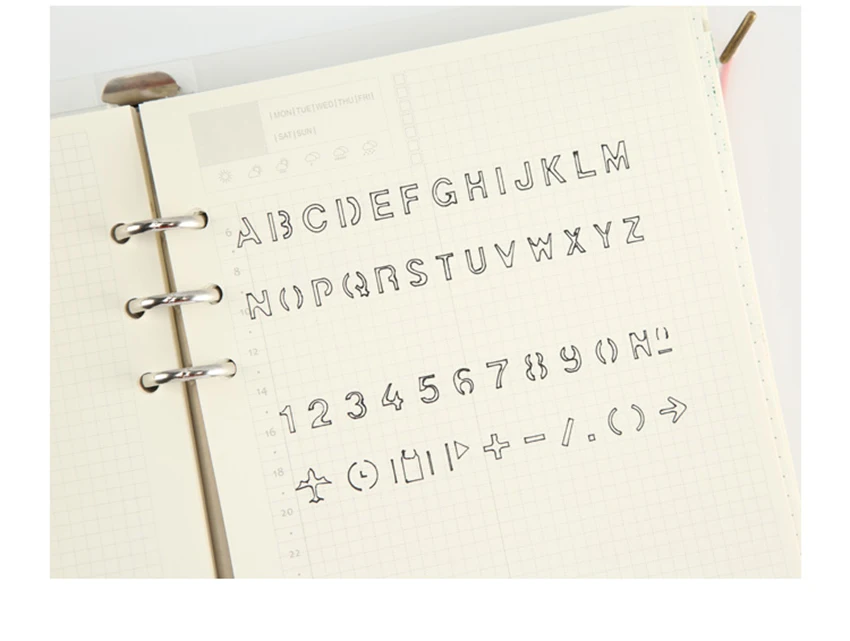 |MON|TUE|WED|THU|FRI|
|SAT|SUN|
6
8
10
12
14
16
18
20
22
ABCDEFGHIJKLM
NOPQRSTUVWXYZ
1234567890 Nº
+ - / . ( ) →